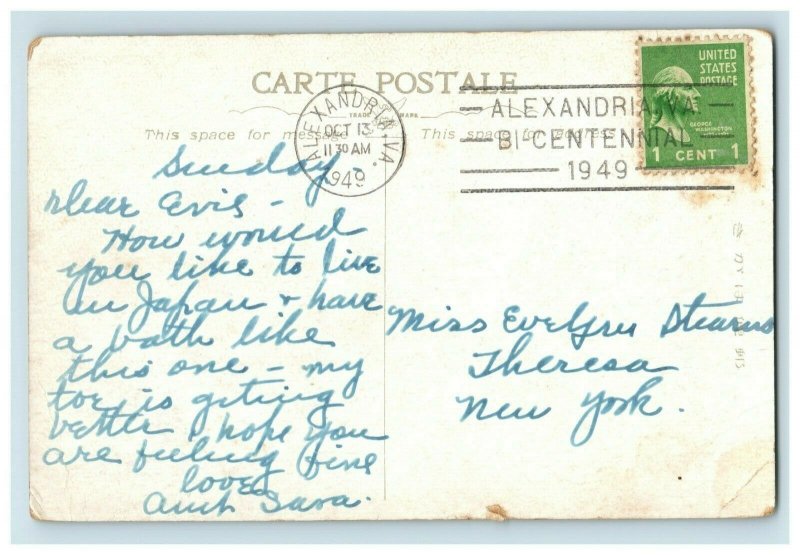 CARTE POSTALE
TRADE MARK
This space for message
This space for address
ALEXANDRIA, VA.
OCT 13
11 30 AM
1949
ALEXANDRIA, VA
BI-CENTENNIAL
1949
UNITED
STATES
POSTAGE
GEORGE
WASHINGTON
1 CENT 1
Sunday -
Dear Evie -
How would
you like to live
in Japan & have
a bath like
this one - my
toe is getting
better & hope you
are feeling fine
love
Aunt Sara.
Miss Evelyn Stearns
Theresa
New York.